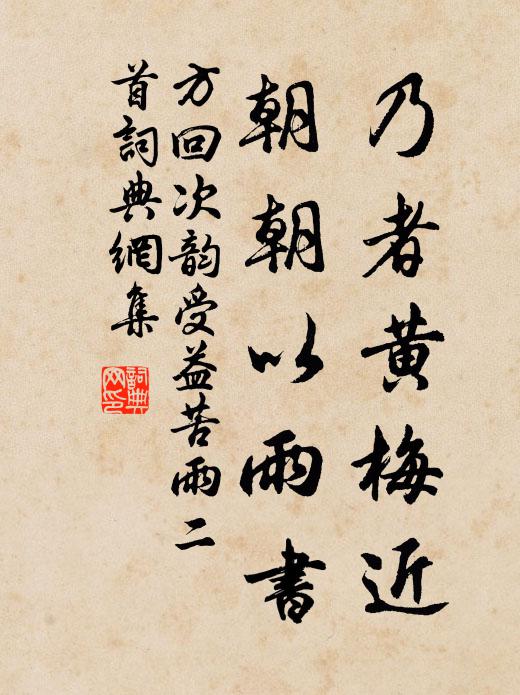 乃者黄梅近
朝朝以雨書
方回次韵受益苦雨二
首詞典網集
詞典
网印